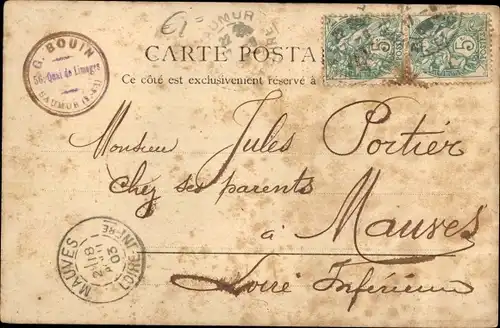 G. BOUIN
56, Quai de Limoges
SAUMUR
SAUMUR
CARTE POSTA
Ce côté est exclusivement réservé à
5
5
Monsieur Jules Portier
chez ses parents
à Mauves
Loire Inférieure
MAUVES
18
03
LOIRE INFRE